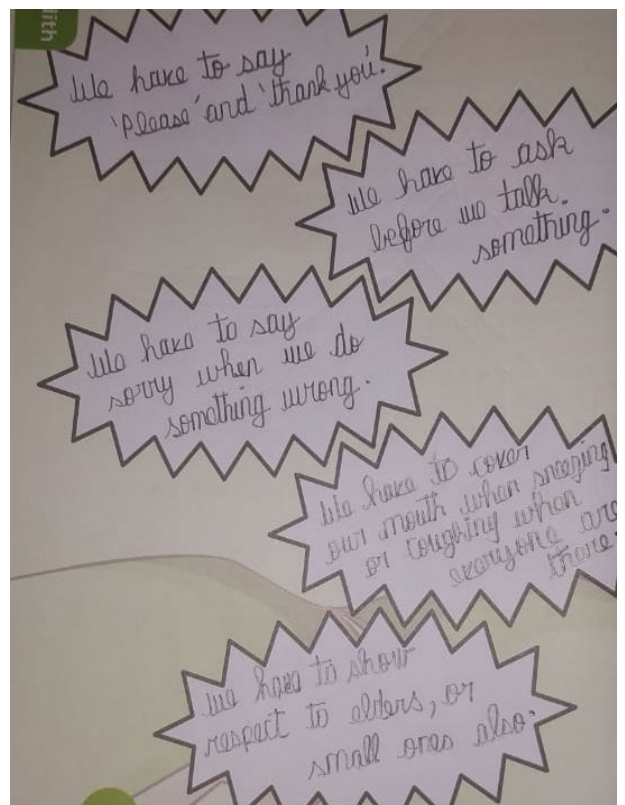 dith
We have to say
'Please' and 'thank you'.
We have to ask
before we talk.
something.
We have to say
sorry when we do
something wrong.
We have to cover
our mouth when sneezing
or coughing when
everyone are
there.
We have to show
respect to elders, or
small ones also.